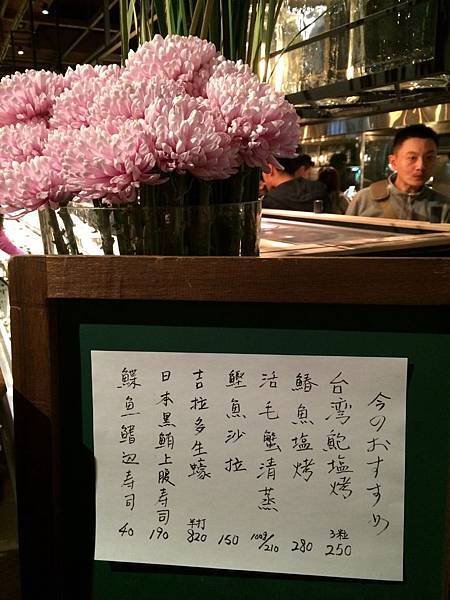 今のおすすめ
台湾鮑塩烤 3粒 250
鰆魚塩烤 280
活毛蟹清蒸 100g/210
鰹魚沙拉 150
吉拉多生蠔 半打 820
日本黑鮪上腹寿司 190
鰈魚鰭边寿司 40